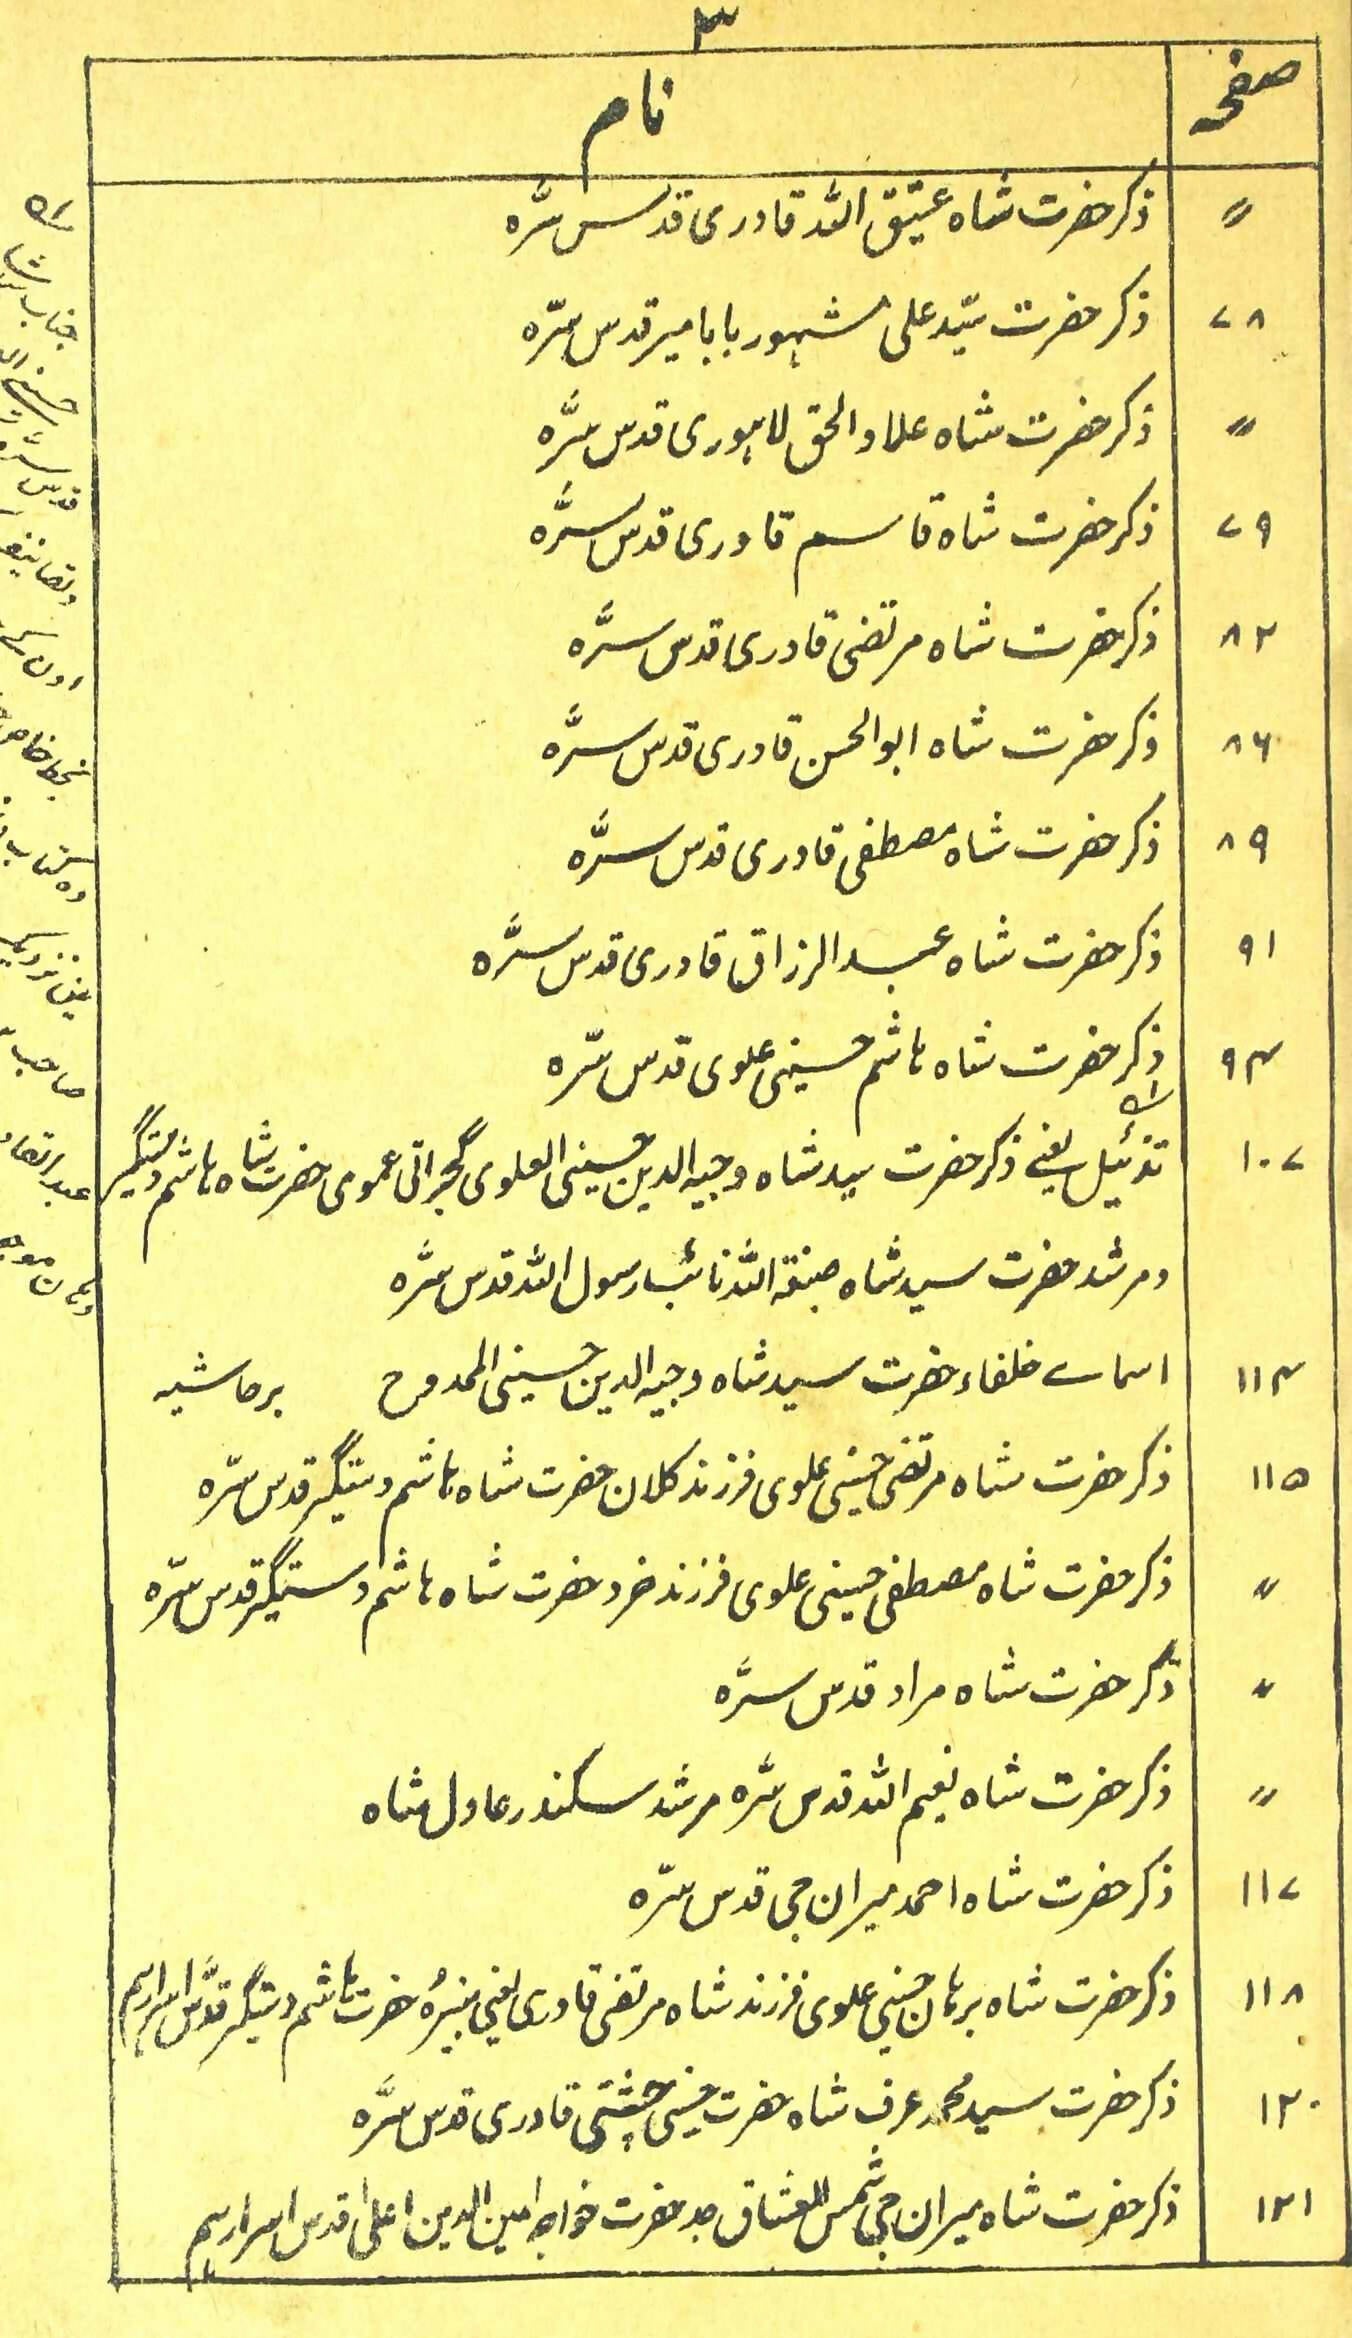 ۳
صفحہ نام
〃 ذکر حضرت شاہ عتیق اللہ قادری قدس سرّہ
۷۸ ذکر حضرت سیّد علی مشہور بابا میر قدس سرّہ
〃 ذکر حضرت شاہ علاو الحق لاہوری قدس سرّہ
۷۹ ذکر حضرت شاہ قاسم قادری قدس سرّہ
۸۲ ذکر حضرت شاہ مرتضی قادری قدس سرّہ
۸۶ ذکر حضرت شاہ ابوالحسن قادری قدس سرّہ
۸۹ ذکر حضرت شاہ مصطفی قادری قدس سرّہ
۹۱ ذکر حضرت شاہ عبدالرزاق قادری قدس سرّہ
۹۴ ذکر حضرت شاہ ہاشم حسینی علوی قدس سرّہ
۱۰۷ تذئیل یعنے ذکر حضرت سید شاہ وجیہ الدین حسینی العلوی گجراتی عموی حضرت شاہ ہاشم دستگیر
ومرشد حضرت سید شاہ صبغۃ اللہ نائب رسول اللہ قدس سرّہ
۱۱۴ اسماے خلفاء حضرت سید شاہ وجیہ الدین حسینی الممدوح برحاشیہ
۱۱۵ ذکر حضرت شاہ مرتضی حسینی علوی فرزند کلان حضرت شاہ ہاشم دستگیر قدس سرّہ
〃 ذکر حضرت شاہ مصطفی حسینی علوی فرزند خرد حضرت شاہ ہاشم دستگیر قدس سرّہ
〃 ذکر حضرت شاہ مراد قدس سرّہ
〃 ذکر حضرت شاہ نعیم اللہ قدس سرّہ مرشد سکندر عادل شاہ
۱۱۷ ذکر حضرت شاہ احمد میران جی قدس سرّہ
۱۱۸ ذکر حضرت شاہ برہان حسینی علوی فرزند شاہ مرتضی قادری یعنی نبیرۂ حضرت ہاشم دستگیر قدّس اسرارہم
۱۲۰ ذکر حضرت سید محمد عرف شاہ حضرت حسینی چشتی قادری قدس سرّہ
۱۲۱ ذکر حضرت شاہ میران جی شمس العشاق جد حضرت خواجہ امین الدین اعلی قدس اسرارہم
جناب
قدس سرّہ
اون کے
صاحب